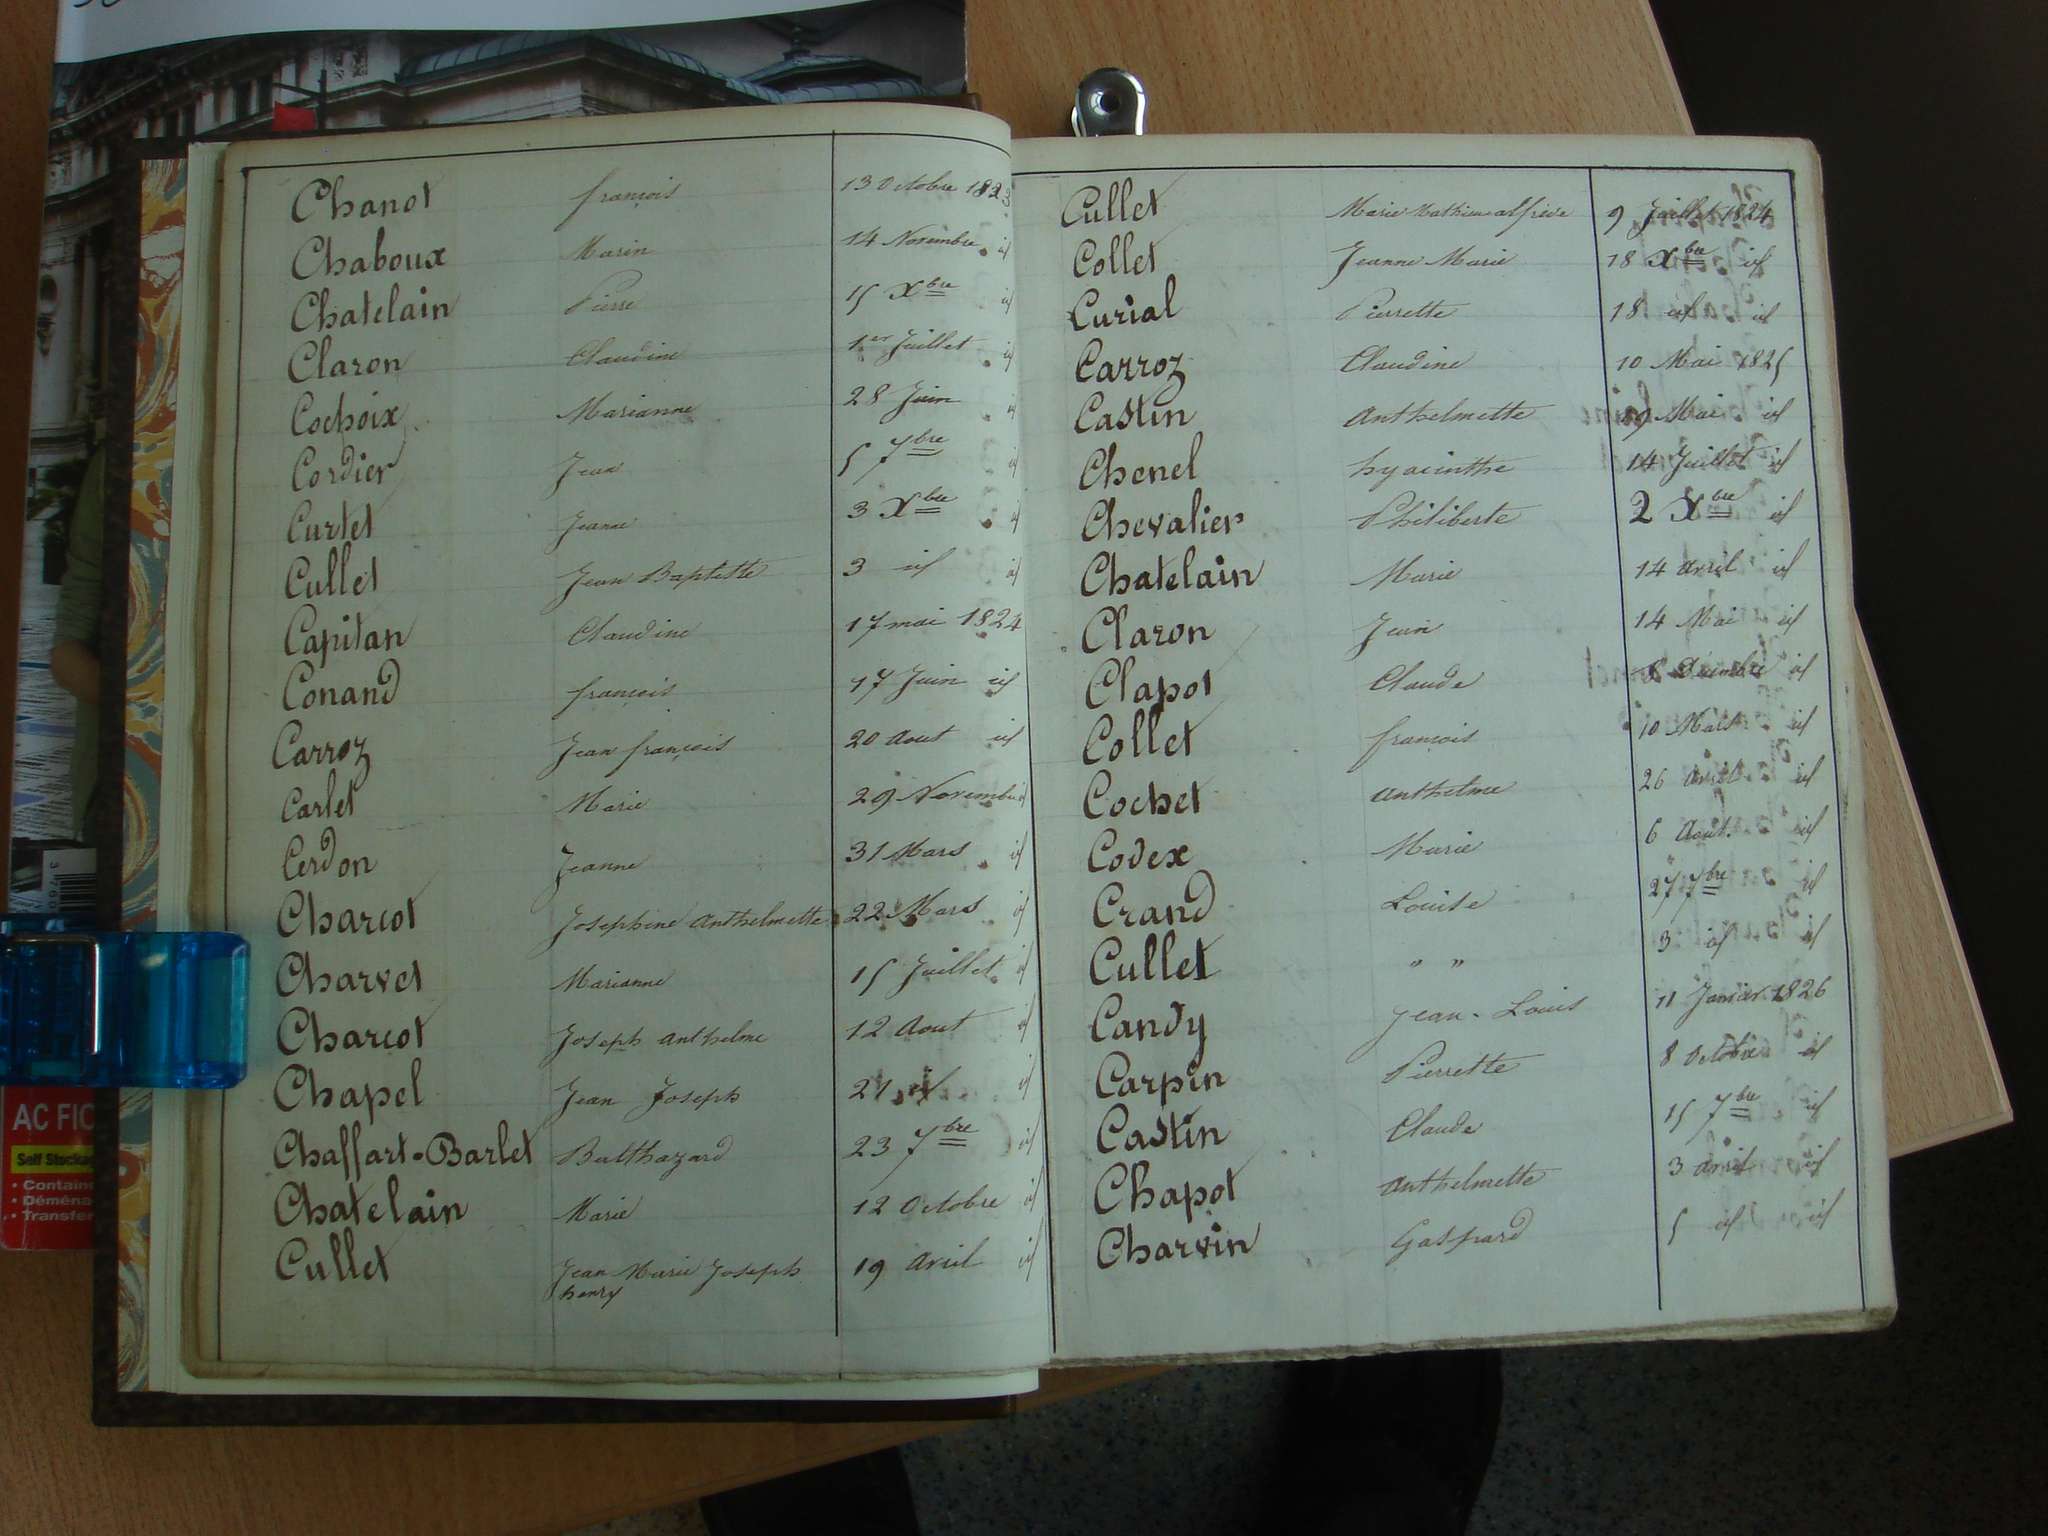 Chanot françois 13 Octobre 1823
Chaboux Marin 14 Novembre id
Chatelain Pierre 15 Xbre id
Claron Claudine 1er Juillet id
Cochoix Marianne 28 Juin id
Cordier Jean 5 7bre id
Curtet Jeanne 3 Xbre id
Cullet Jean Baptiste 3 id id
Capitan Claudine 17 mai 1824
Conand françois 17 Juin id
Carroz Jean françois 20 Aout id
Carlet Marie 29 Novembre id
Cerdon Jeanne 31 Mars id
Charcot Josephine Anthelmette 22 Mars id
Charvet Marianne 15 Juillet id
Charcot Joseph Anthelme 12 Aout id
Chapel Jean Joseph 21 id id
Chaffart-Barlet Balthazard 23 7bre id
Chatelain Marie 12 Octobre id
Cullet Jean Marie Joseph 19 Avril id
henry
Cullet Marie Mathieu alfrede 9 Juillet 1824
Collet Jeanne Marie 18 Xbre id
Curial Pierrette 18 id id
Carroz Claudine 10 Mai 1825
Castin Anthelmette 19 Mai id
Chenel hyacinthe 14 Juillet id
Chevalier Philiberte 2 Xbre id
Chatelain Marie 14 avril id
Claron Jean 14 Mai id
Clapot Claude 8 Décembre id
Collet françois 10 Mars id
Cochet Anthelme 26 Avril id
Codex Marie 6 Aout id
Crand Louise 27 7bre id
Cullet " " 3 id id
Candy Jean-Louis 11 Janvier 1826
Carpin Pierrette 8 Octobre id
Castin Claude 15 7bre id
Chapot Anthelmette 3 avril id
Charvin Gaspard 5 id id
AC FIC
Self Stockag
• Containe
• Déména
• Transfer